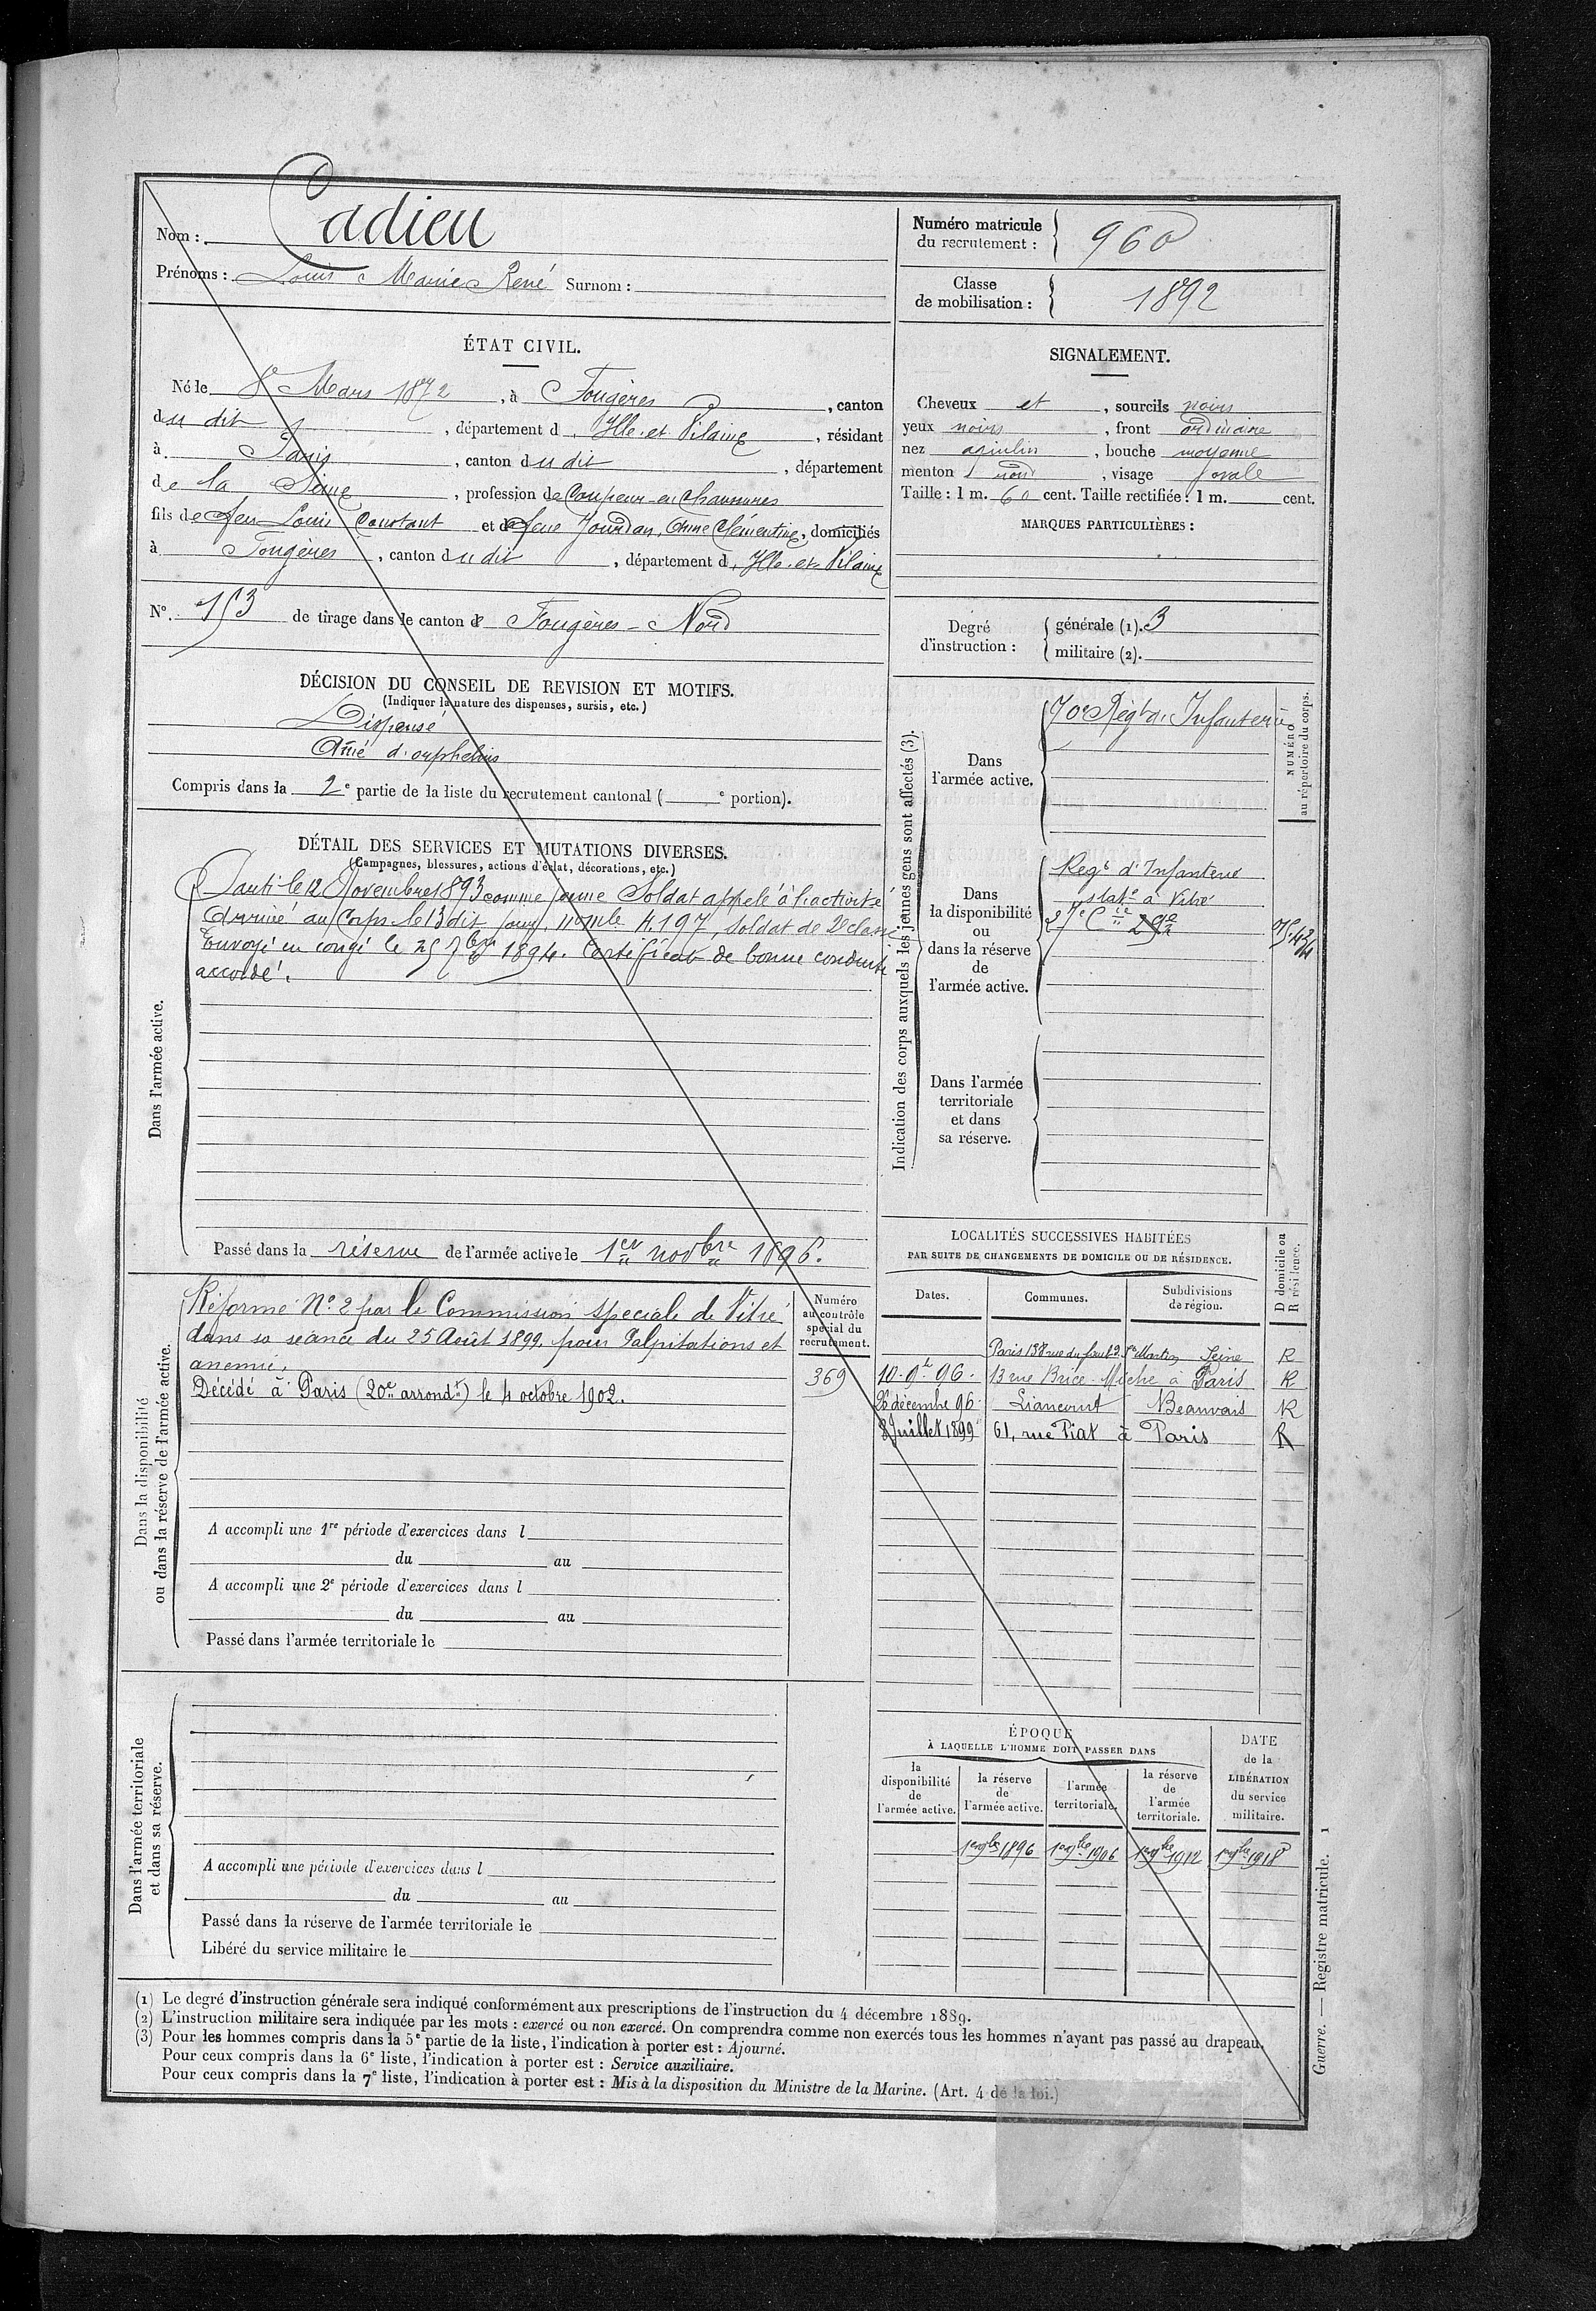 Nom : Cadieu
Prénoms : Louis Marie René Surnom :
Numéro matricule du recrutement : 960
Classe de mobilisation : 1892
ÉTAT CIVIL.
Né le 8 Mars 1872, à Fougères, canton
du dit, département d Ille-et-Vilaine, résidant
à Paris, canton du dit, département
de la Seine, profession de Coupeur en Chaussures
fils de feu Louis Constant et de feue Jourdan, Anne Clémentine, domiciliés
à Fougères, canton du dit, département d Ille-et-Vilaine
N°. 153 de tirage dans le canton de Fougères-Nord
SIGNALEMENT.
Cheveux et, sourcils noirs
yeux noirs, front ordinaire
nez aquilin, bouche moyenne
menton rond, visage ovale
Taille : 1 m. 60 cent. Taille rectifiée : 1 m. cent.
MARQUES PARTICULIÈRES :
Degré d'instruction :
générale (1). 3
militaire (2).
DÉCISION DU CONSEIL DE REVISION ET MOTIFS.
(Indiquer la nature des dispenses, sursis, etc.)
Dispensé
Aîné d'orphelins
Compris dans la 2e partie de la liste du recrutement cantonal ( e portion).
DÉTAIL DES SERVICES ET MUTATIONS DIVERSES.
(Campagnes, blessures, actions d'éclat, décorations, etc.)
Dans l'armée active.
Parti le 12 Novembre 1893 comme jeune Soldat appelé à l'activité
Arrivé au Corps le 13 dit jour, mle 4.197, soldat de 2e classe
Envoyé en congé le 25 7bre 1894. Certificat de bonne conduite
accordé.
Passé dans la réserve de l'armée active le 1er novbre 1896.
Indication des corps auxquels les jeunes gens sont affectés (3).
NUMÉRO au répertoire du corps.
Dans l'armée active.
70e Régt d'Infanterie
Dans la disponibilité ou dans la réserve de l'armée active.
Regt d'Infanterie
statre à Vitré
Dans l'armée territoriale et dans sa réserve.
Dans la disponibilité ou dans la réserve de l'armée active.
Réformé N° 2 par la Commission spéciale de Vitré
dans sa séance du 25 Août 1899, pour Palpitations et
anémie.
Décédé à Paris (20e arrondt) le 4 octobre 1902.
Numéro au contrôle spécial du recrutement.
369
A accompli une 1re période d'exercices dans l
du au
A accompli une 2e période d'exercices dans l
du au
Passé dans l'armée territoriale le
LOCALITÉS SUCCESSIVES HABITÉES
PAR SUITE DE CHANGEMENTS DE DOMICILE OU DE RÉSIDENCE.
D domicile ou R résidence.
Dates. Communes. Subdivisions de région.
Paris 138 rue du faub St Martin Seine R
10 9bre 96. 13 rue Brice Miche à Paris R
26 décembre 96 Liancourt Beauvais R
8 Juillet 1899 61, rue Piat à Paris R
Dans l'armée territoriale et dans sa réserve.
A accompli une période d'exercices dans l
du au
Passé dans la réserve de l'armée territoriale le
Libéré du service militaire le
ÉPOQUE
À LAQUELLE L'HOMME DOIT PASSER DANS
la disponibilité de l'armée active.
la réserve de l'armée active.
l'armée territoriale.
la réserve de l'armée territoriale.
DATE de la LIBÉRATION du service militaire.
1er 9bre 1896 1er 9bre 1906 1er 9bre 1912 1er 9bre 1918
(1) Le degré d'instruction générale sera indiqué conformément aux prescriptions de l'instruction du 4 décembre 1889.
(2) L'instruction militaire sera indiquée par les mots : exercé ou non exercé. On comprendra comme non exercés tous les hommes n'ayant pas passé au drapeau.
(3) Pour les hommes compris dans la 5e partie de la liste, l'indication à porter est : Ajourné.
Pour ceux compris dans la 6e liste, l'indication à porter est : Service auxiliaire.
Pour ceux compris dans la 7e liste, l'indication à porter est : Mis à la disposition du Ministre de la Marine. (Art. 4 de la loi.)
Guerre. — Registre matricule. 1